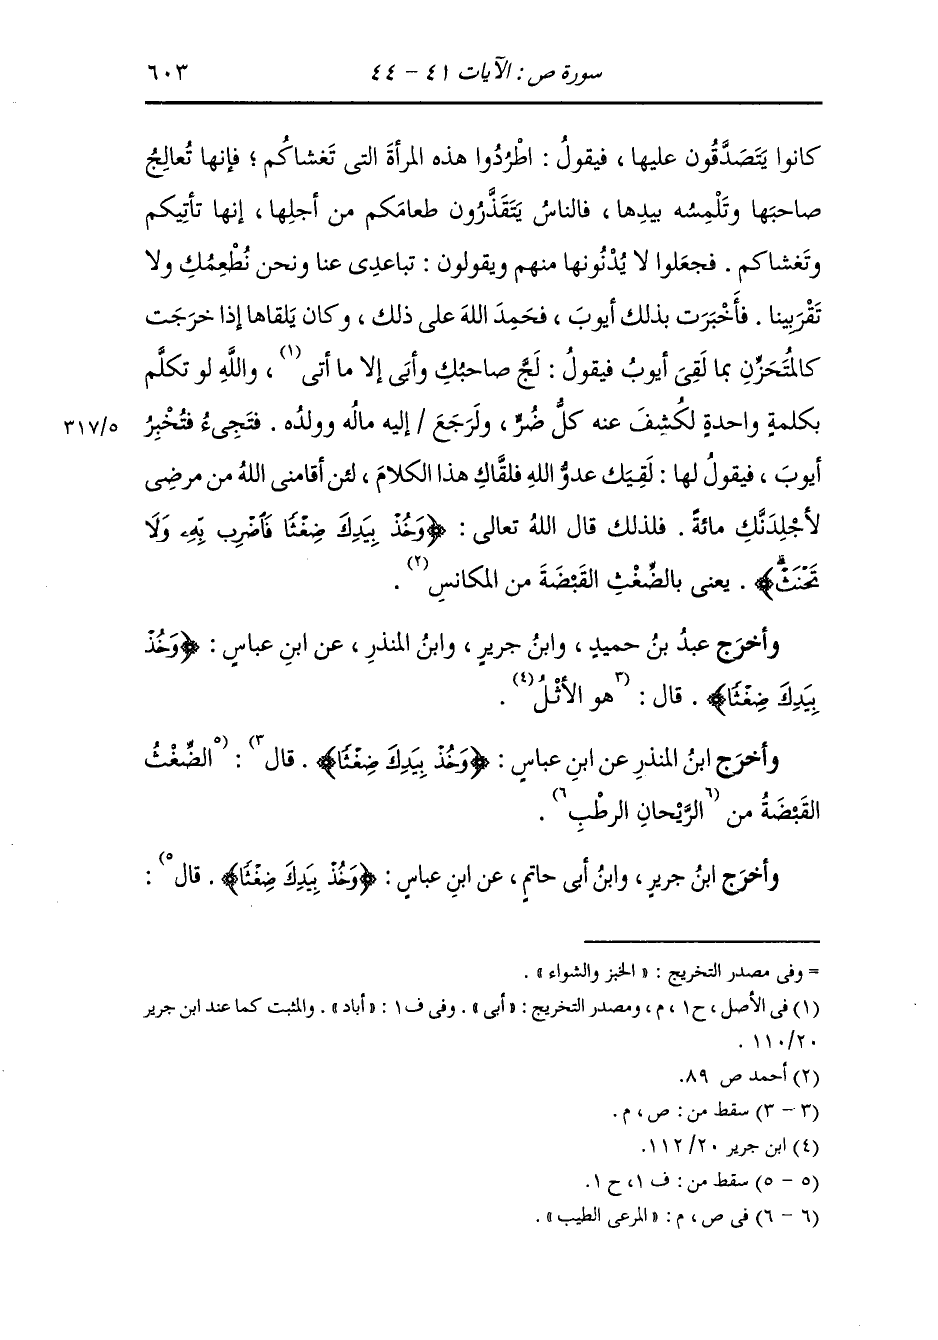 سورة ص : الآيات ٤١ - ٤٤ ٦٠٣
كانوا يَتَصَدَّقُون عليها ، فيقولُ : اطْرُدُوا هذه المرأةَ التى تَغشاكُم ؛ فإنها تُعالِجُ
صاحبَها وتَلْمِسُه بيدِها ، فالناسُ يَتَقَذَّرُون طعامَكم من أجلِها ، إنها تأتِيكم
وتَغشاكم . فجعَلوا لا يُدْنُونها منهم ويقولون : تباعدِى عنا ونحن نُطْعِمُكِ ولا
تَقْرَبِينا . فأَخْبَرَت بذلك أيوبَ ، فحَمِدَ اللهَ على ذلك ، وكان يَلقاها إذا خرَجَت
كالمتُحَزِّنِ بما لَقِىَ أيوبُ فيقولُ : لَجَّ صاحبُكِ وأبَى إلا ما أتى(١) ، واللَّهِ لو تكلَّم
بكلمةٍ واحدةٍ لكُشِفَ عنه كلُّ ضُرٍّ ، ولَرَجَعَ / إليه مالُه وولدُه . فتَجِىءُ فتُخْبِرُ ٣١٧/٥
أيوبَ ، فيقولُ لها : لَقِيَك عدوُّ اللهِ فلقَّاكِ هذا الكلامَ ، لئن أقامنى اللهُ من مرضِى
لأجْلِدَنَّكِ مائةً . فلذلك قال اللهُ تعالى : ﴿وَخُذْ بِيَدِكَ ضِغْثًا فَٱضْرِب بِّهِۦ وَلَا
تَحْنَثْ﴾ . يعنى بالضِّغْثِ القَبْضَةَ من المكانسِ(٢) .
وأخرَج عبدُ بنُ حميدٍ ، وابنُ جريرٍ ، وابنُ المنذرِ ، عن ابنِ عباسٍ : ﴿وَخُذْ
بِيَدِكَ ضِغْثًا﴾ . قال : (٣هو الأثْلُ(٤) .
وأخرَج ابنُ المنذرِ عن ابنِ عباسٍ : ﴿وَخُذْ بِيَدِكَ ضِغْثًا﴾ . قال٣) : (٥الضِّغْثُ
القَبْضَةُ من (٦الرَّيْحانِ الرطْبِ٦) .
وأخرَج ابنُ جريرٍ ، وابنُ أبى حاتمٍ ، عن ابنِ عباسٍ : ﴿وَخُذْ بِيَدِكَ ضِغْثًا﴾ . قال٥) :
= وفى مصدر التخريج : « الخبز والشواء » .
(١) فى الأصل ، ح ١ ، م ، ومصدر التخريج : « أبى » . وفى ف ١ : « أباد » . والمثبت كما عند ابن جرير
١١٠/٢٠ .
(٢) أحمد ص ٨٩.
(٣ - ٣) سقط من : ص ، م .
(٤) ابن جرير ١١٢/٢٠.
(٥ - ٥) سقط من : ف ١، ح ١.
(٦ - ٦) فى ص ، م : « المرعى الطيب » .